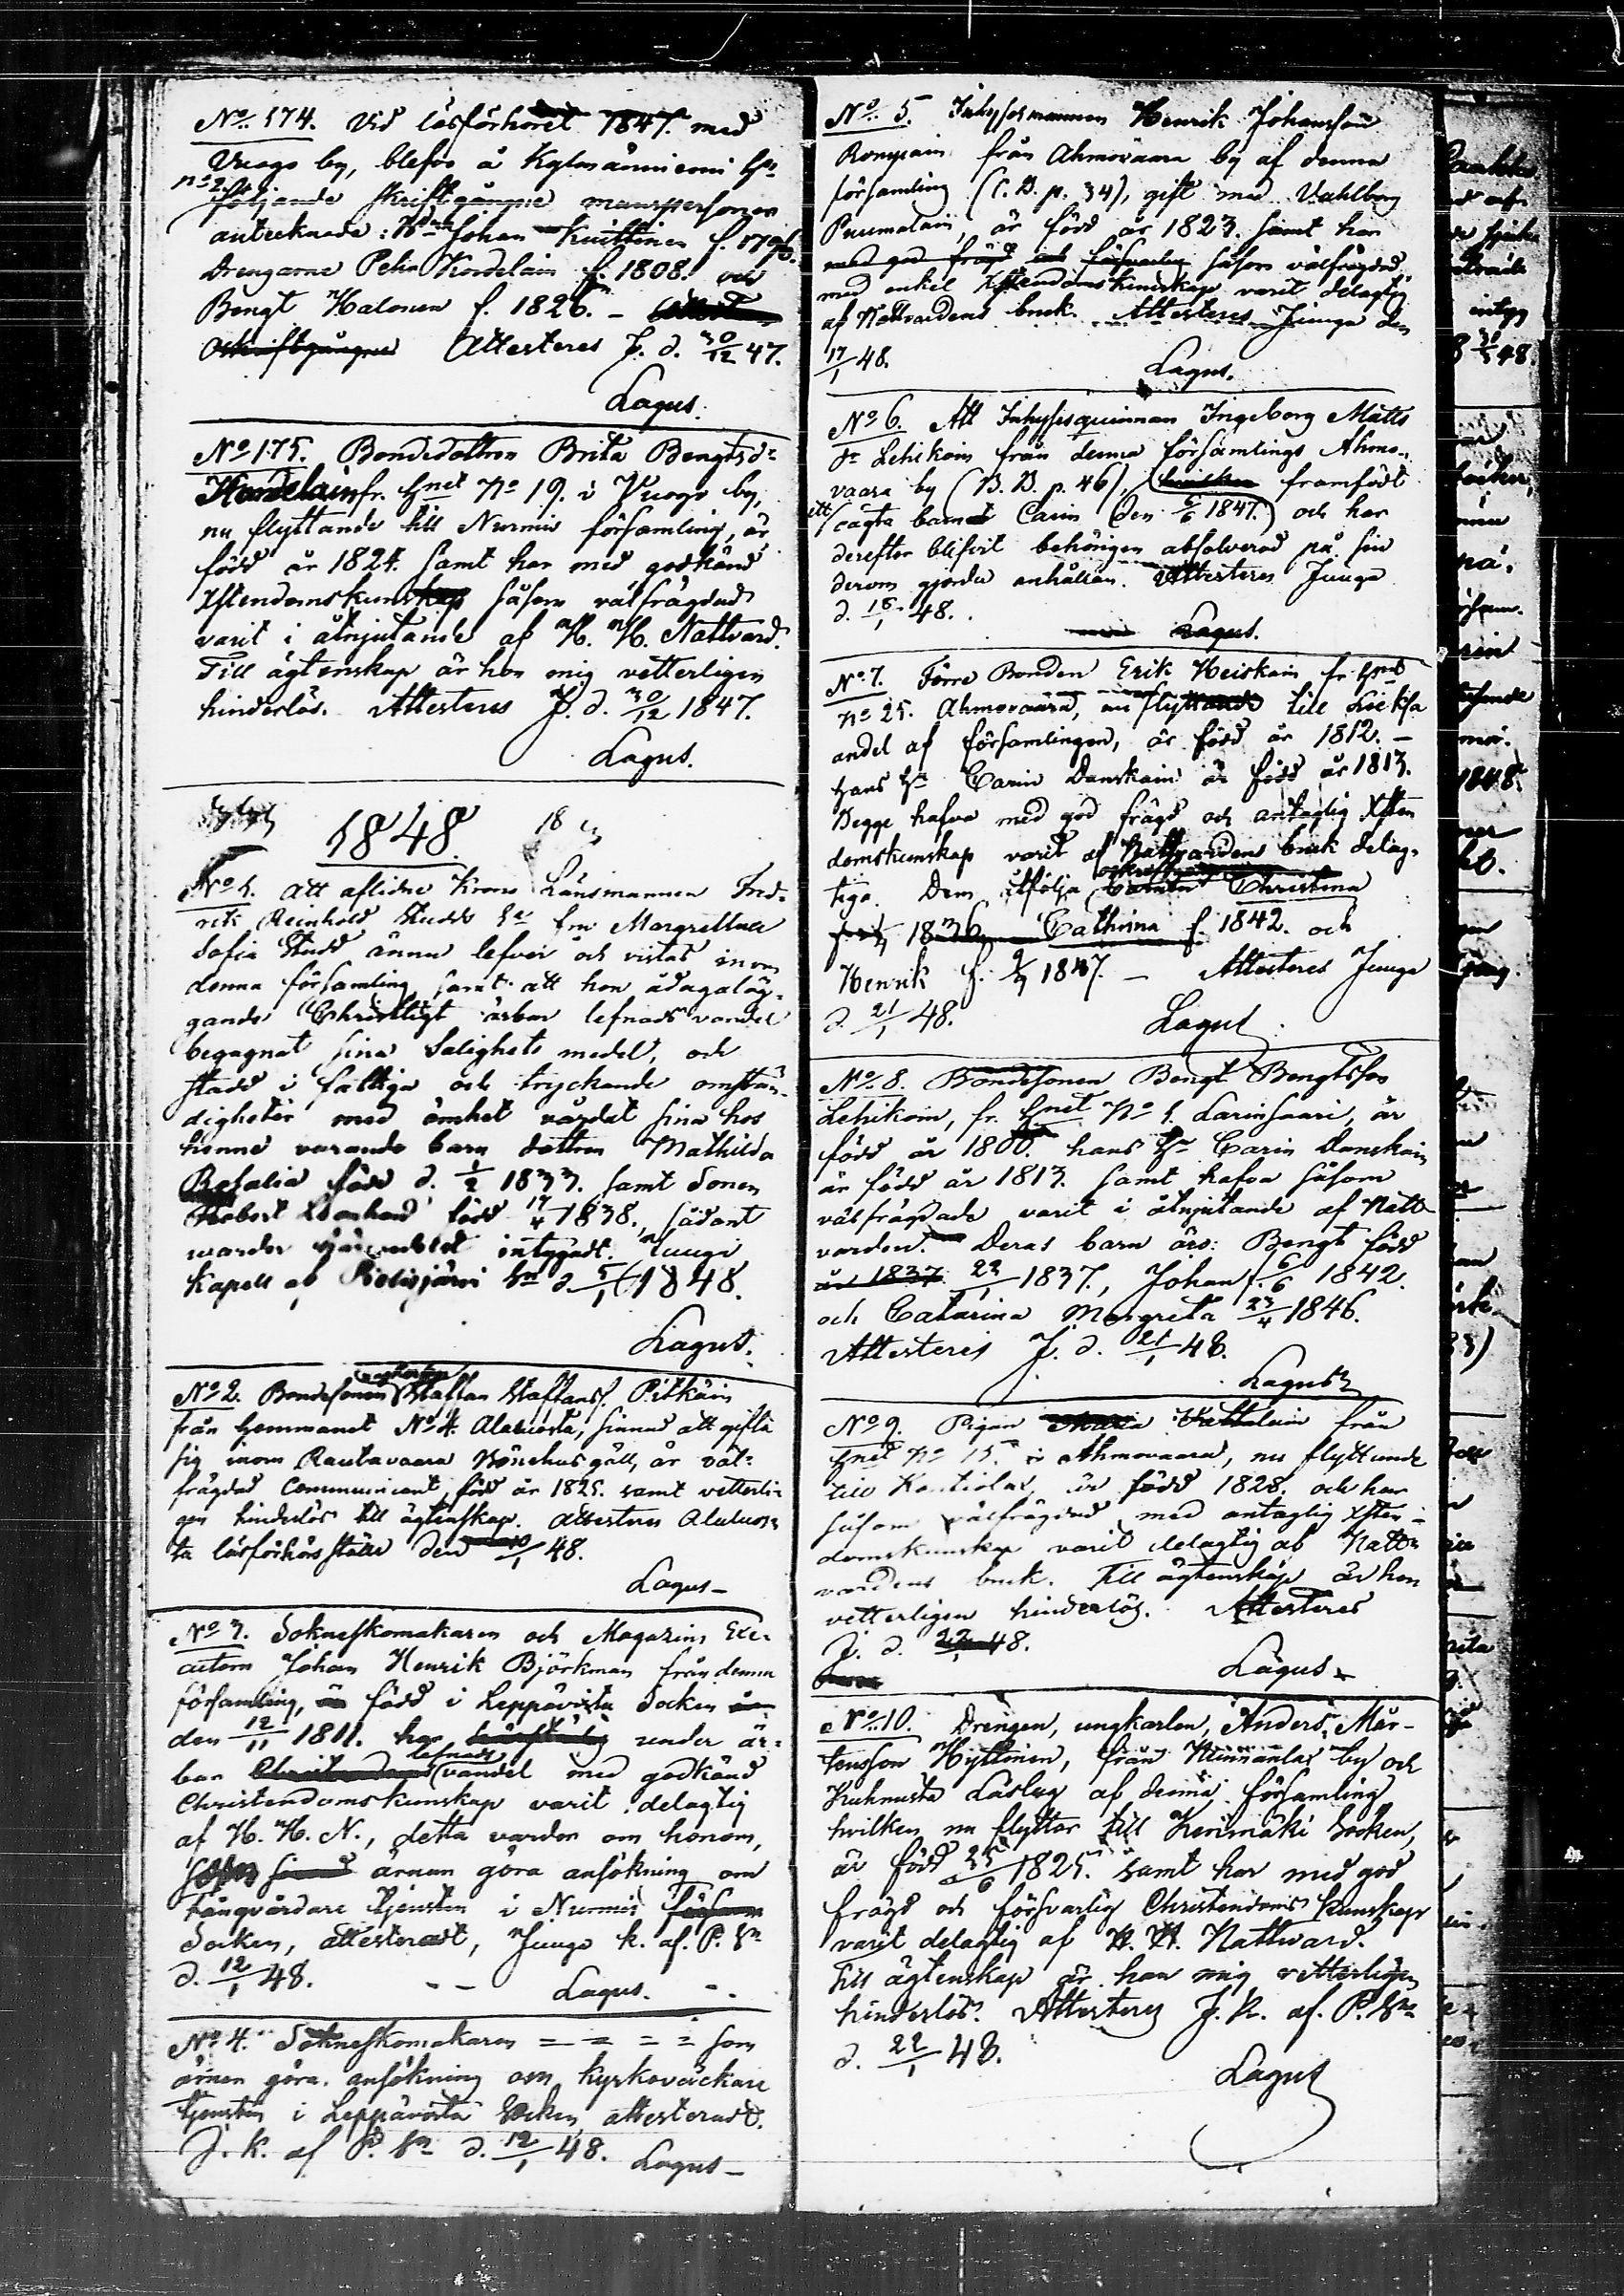 No. 174. Vid läsförhöret 1847. med
Vuogo by, blefvo å Kylmäniemi Hn
no 2 följande skriftgångne manspersoner
antecknade: Johan Kuittinen f. 1796.
Drengarne Pehr Kordelain f. 1808. och
Bengt Halonen f. 1826. –
Oskriftgångne Attesteres J. d. 30/12 47.
Lagus.
No 175. Bondedottren Brita Bengtsdr
Kordelain fr. Hnet No 19. i Vuogo by,
nu flyttande till Nurmis församling, är
född år 1824. samt har med godkänd
Xstendomskunskap såsom välfrägdad
varit i åtnjutande af H. H. Nattvard.
Till ägtenskap är hon mig vetterligen
hinderlös. Attesteres J. d. 30/12 1847.
Lagus.
1848.
No 1. Att aflidne Krono Länsmannen Fred-
rik Reinhold Studds Ea fru Margrettha
Sofia Studd ännu lefver och vistas inom
denna församling, samt att hon ådagaläg-
gande Christligt ärbar lefnads vandel
begagnat sina Salighets medel, och
stadd i fattiga och tryckande omstän-
digheter med ömhet vårdat sina hos
henne varande barn dottren Mathilda
Rosalia född d. 1/2 1833. samt Sonen
Robert Leonhard född 17/4 1838., sådant
warder härmedelst intygadt. Juuga
Kapell af Pielisjärvi Sn d. 5/1 1848.
Lagus.
No 2. Bondesonen Staffan Staffanss. Pitkäin
från Hemmanet No 4. Aluuosta, sinnad att gifta
sig inom Rautavaara Bönehus gäll, är väl-
frägdad Communicant, född år 1825. samt vetterli-
gen hinderlös till ägtenskap. Attesteres Aluuos-
ta läsförhörsställe den /1 48.
Lagus –
No 3. Sokneskomakaren och Magazins Exe-
cutorn Johan Henrik Björkman från denna
församling, är född i Leppävirta Socken
den 12/11 1811. har under är-
bar lefnads vandel med godkänd
Christendomskunskap varit delagtig
af H. H. N., detta varder om honom,
ärnar göra ansökning om
fångvårdare tjensten i Nurmis
Socken, attesteradt, Juuga k. af. P. Sn
d. 12/1 48. -- Lagus. --
No 4. Sokneskomakaren = = = = som
ärnar göra ansökning om kyrkoväckare
tjensten i Leppävirta Socken attesteradt.
J. k. af P. Sn d. 12/1 48. Lagus –
No 5. Inhysesmannen Henrik Johansson
Rompain från Ahmovaara by af denna
församling (C. B. p. 34), gift med Vahlborg
Puumalain, är född år 1823. samt har
med god frägd och försvarlig såsom välfrägdad,
med enkel Xstendomskunskap varit delagtig
af Nattvardens bruk. Attesteres Juuga den
17/1 48. Lagus.
No 6. Att Inhysesquinnan Ingeborg Matts
dr Lehikoin från denna församlings Ahmo-
vaara by (B. B. p. 46), framfödt
ett oägta barn Carin (den 6/6 1847.) och har
derefter blifvit behörigen absolverad på sin
derom gjorda anhållan. Attesteres Juuga
d. 18/1 48.
Lagus.
No 7. Förre Bonden Erik Heiskain fr. Hnet
No 25. Ahmovaara, nu flyttande till Lieksa
andel af församlingen, är född år 1812. –
hans Ha Carin Danskain är född år 1813.
Begge hafva med god frägd och antaglig Xsten
domskunskap varit af Nattvardens bruk delag-
tiga. Dem åtfölja Christina
1836, Cathrina f. 1842. och
Henrik f. 9/7 1847. – Attesteres Juuga
d. 21/1 48. Lagus.
No 8. Bondesonen Bengt Bengtsson
Lehikoin, fr. Hnet No 1. Larinsaari, är
född år 1800. hans Ha Carin Danskain
är född år 1813. samt hafva såsom
välfrägdade varit i åtnjutande af Natt-
varden. Deras barn äro: Bengt född
år 1837. 23/1 1837., Johan f. 6/6 1842.
och Catarina Margreta 23/4 1846.
Attesteres J. d. 21/1 48.
Lagus
No 9. Pigan Maria Vattulain från
Hnet No 15. i Ahmovaara, nu flyttande
till Kontiolax, är född 1828. och har
såsom välfrägdad med antaglig Xsten-
domskunskap varit delagtig af Natt-
vardens bruk. Till ägtenskap är hon
vetterligen hinderlös. Attesteres
J. d. 22/1 48.
Lagus
No 10. Drengen, ungkarlen, Anders Mår-
tensson Hyttinen, från Nunnanlax by och
Kuhnusta Läslag af denna församling
hvilken nu flyttar till Kerimäki Socken,
är född 25/6 1825. samt har med god
frägd och försvarlig Christendoms kunskap
varit delagtig af H. H. Nattvard.
Till ägtenskap är han mig vetterligen
hinderlös. Attesteres J. k. af. P. Sn
d. 22/1 48.
Lagus